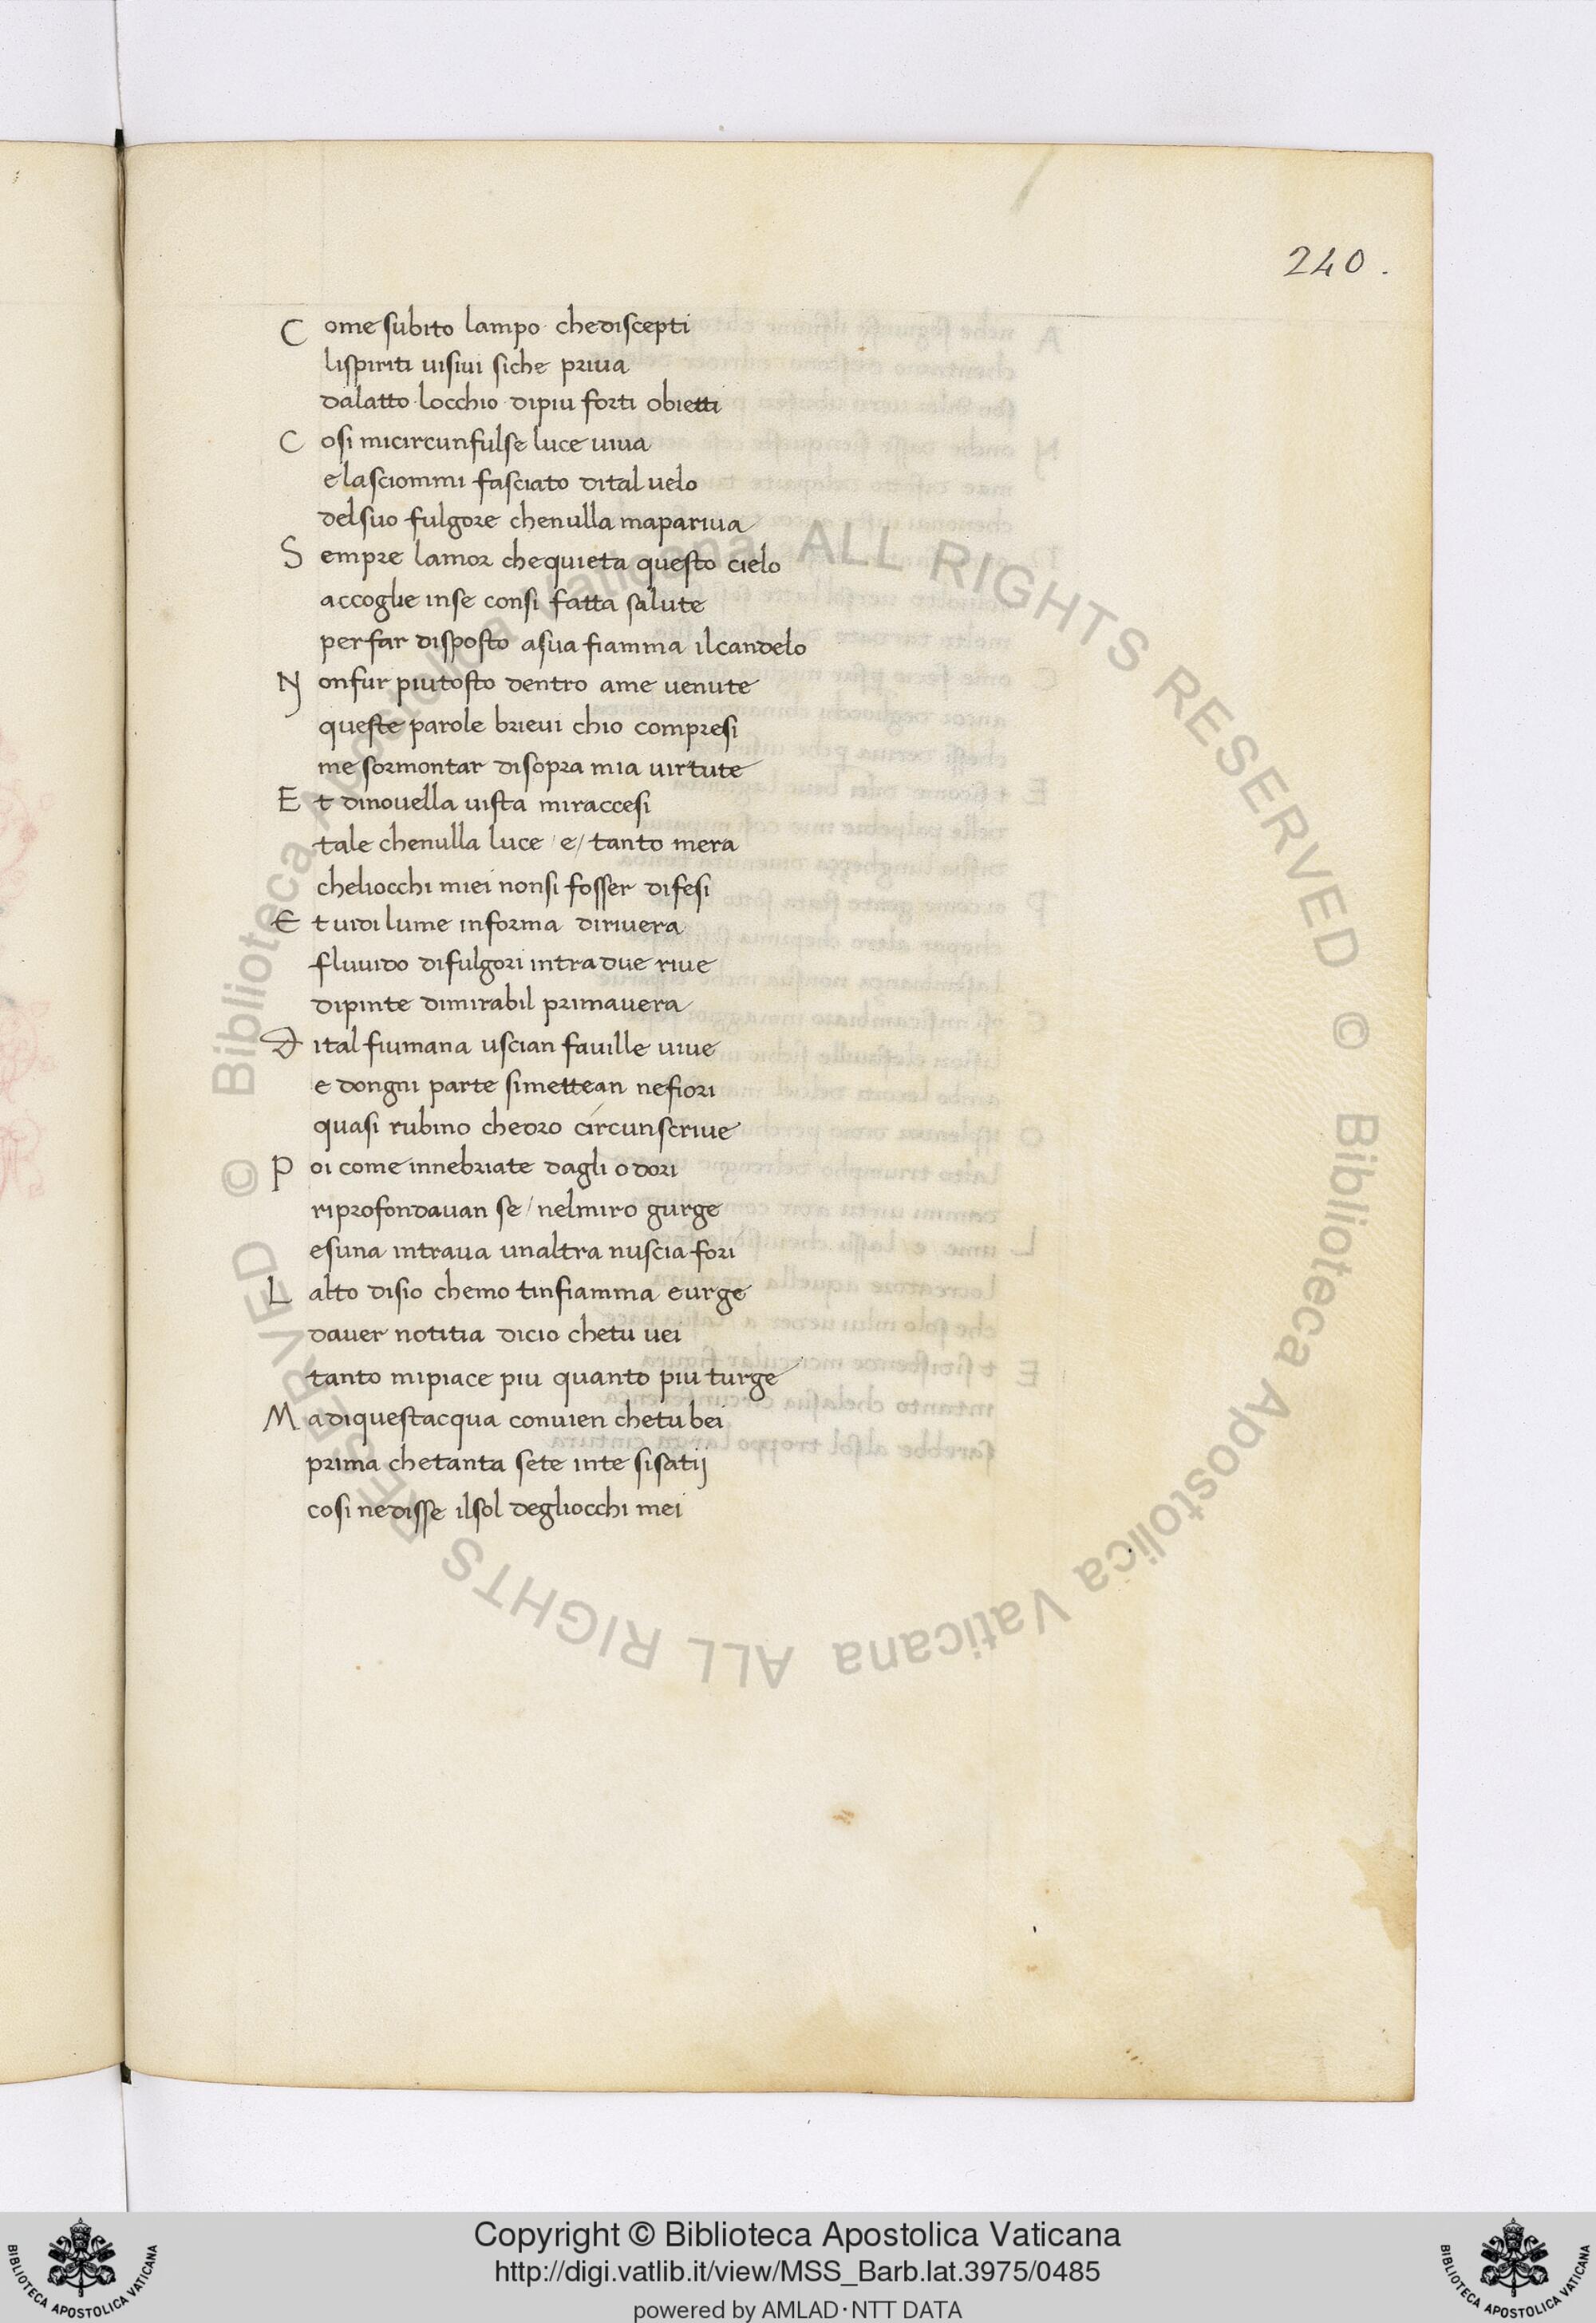 240.
C ome subito lampo chediscepti
lispiriti uisiui siche priua
dalatto locchio dipiu forti obietti
C osi micircunfulse luce uiua
elasciommi fasciato dital uelo
delsuo fulgore chenulla mapariua
S empre lamor chequieta questo cielo
accoglie inse consi fatta salute
perfar disposto asua fiamma ilcandelo
N onfur piutosto dentro ame uenute
queste parole brieui chio compresi
me sormontar disopra mia uirtute
E t dinouella uista miraccesi
tale chenulla luce /e/ tanto mera
cheliocchi miei nonsi fosser difesi
E t uidi lume informa diriuera
fluuido difulgori intradue riue
dipinte dimirabil primauera
D ital fiumana uscian fauille uiue
e dongni parte simettean nefiori
quasi rubino cheoro circunscriue
P oi come innebriate dagli odori
riprofondauan se/ nelmiro gurge
esuna intraua unaltra nuscia fori
L alto disio chemo tinfiamma eurge
dauer notitia dicio chetu uei
tanto mipiace piu quanto piu turge
M adiquestacqua conuien chetu bei
prima chetanta sete inte sisatij
cosi nedisse ilsol degliocchi mei
© Biblioteca Apostolica Vaticana ALL RIGHTS RESERVED © Biblioteca Apostolica Vaticana ALL RIGHTS RESERVED
Copyright © Biblioteca Apostolica Vaticana
http://digi.vatlib.it/view/MSS_Barb.lat.3975/0485
powered by AMLAD·NTT DATA
BIBLIOTECA APOSTOLICA VATICANA
BIBLIOTECA APOSTOLICA VATICANA